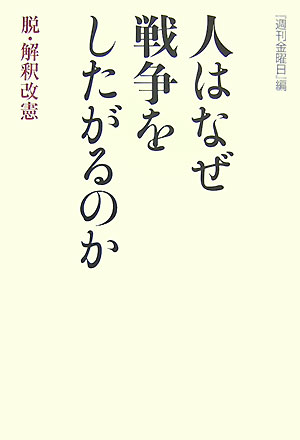 『週刊金曜日』編
人はなぜ
戦争を
したがるのか
脱・解釈改憲